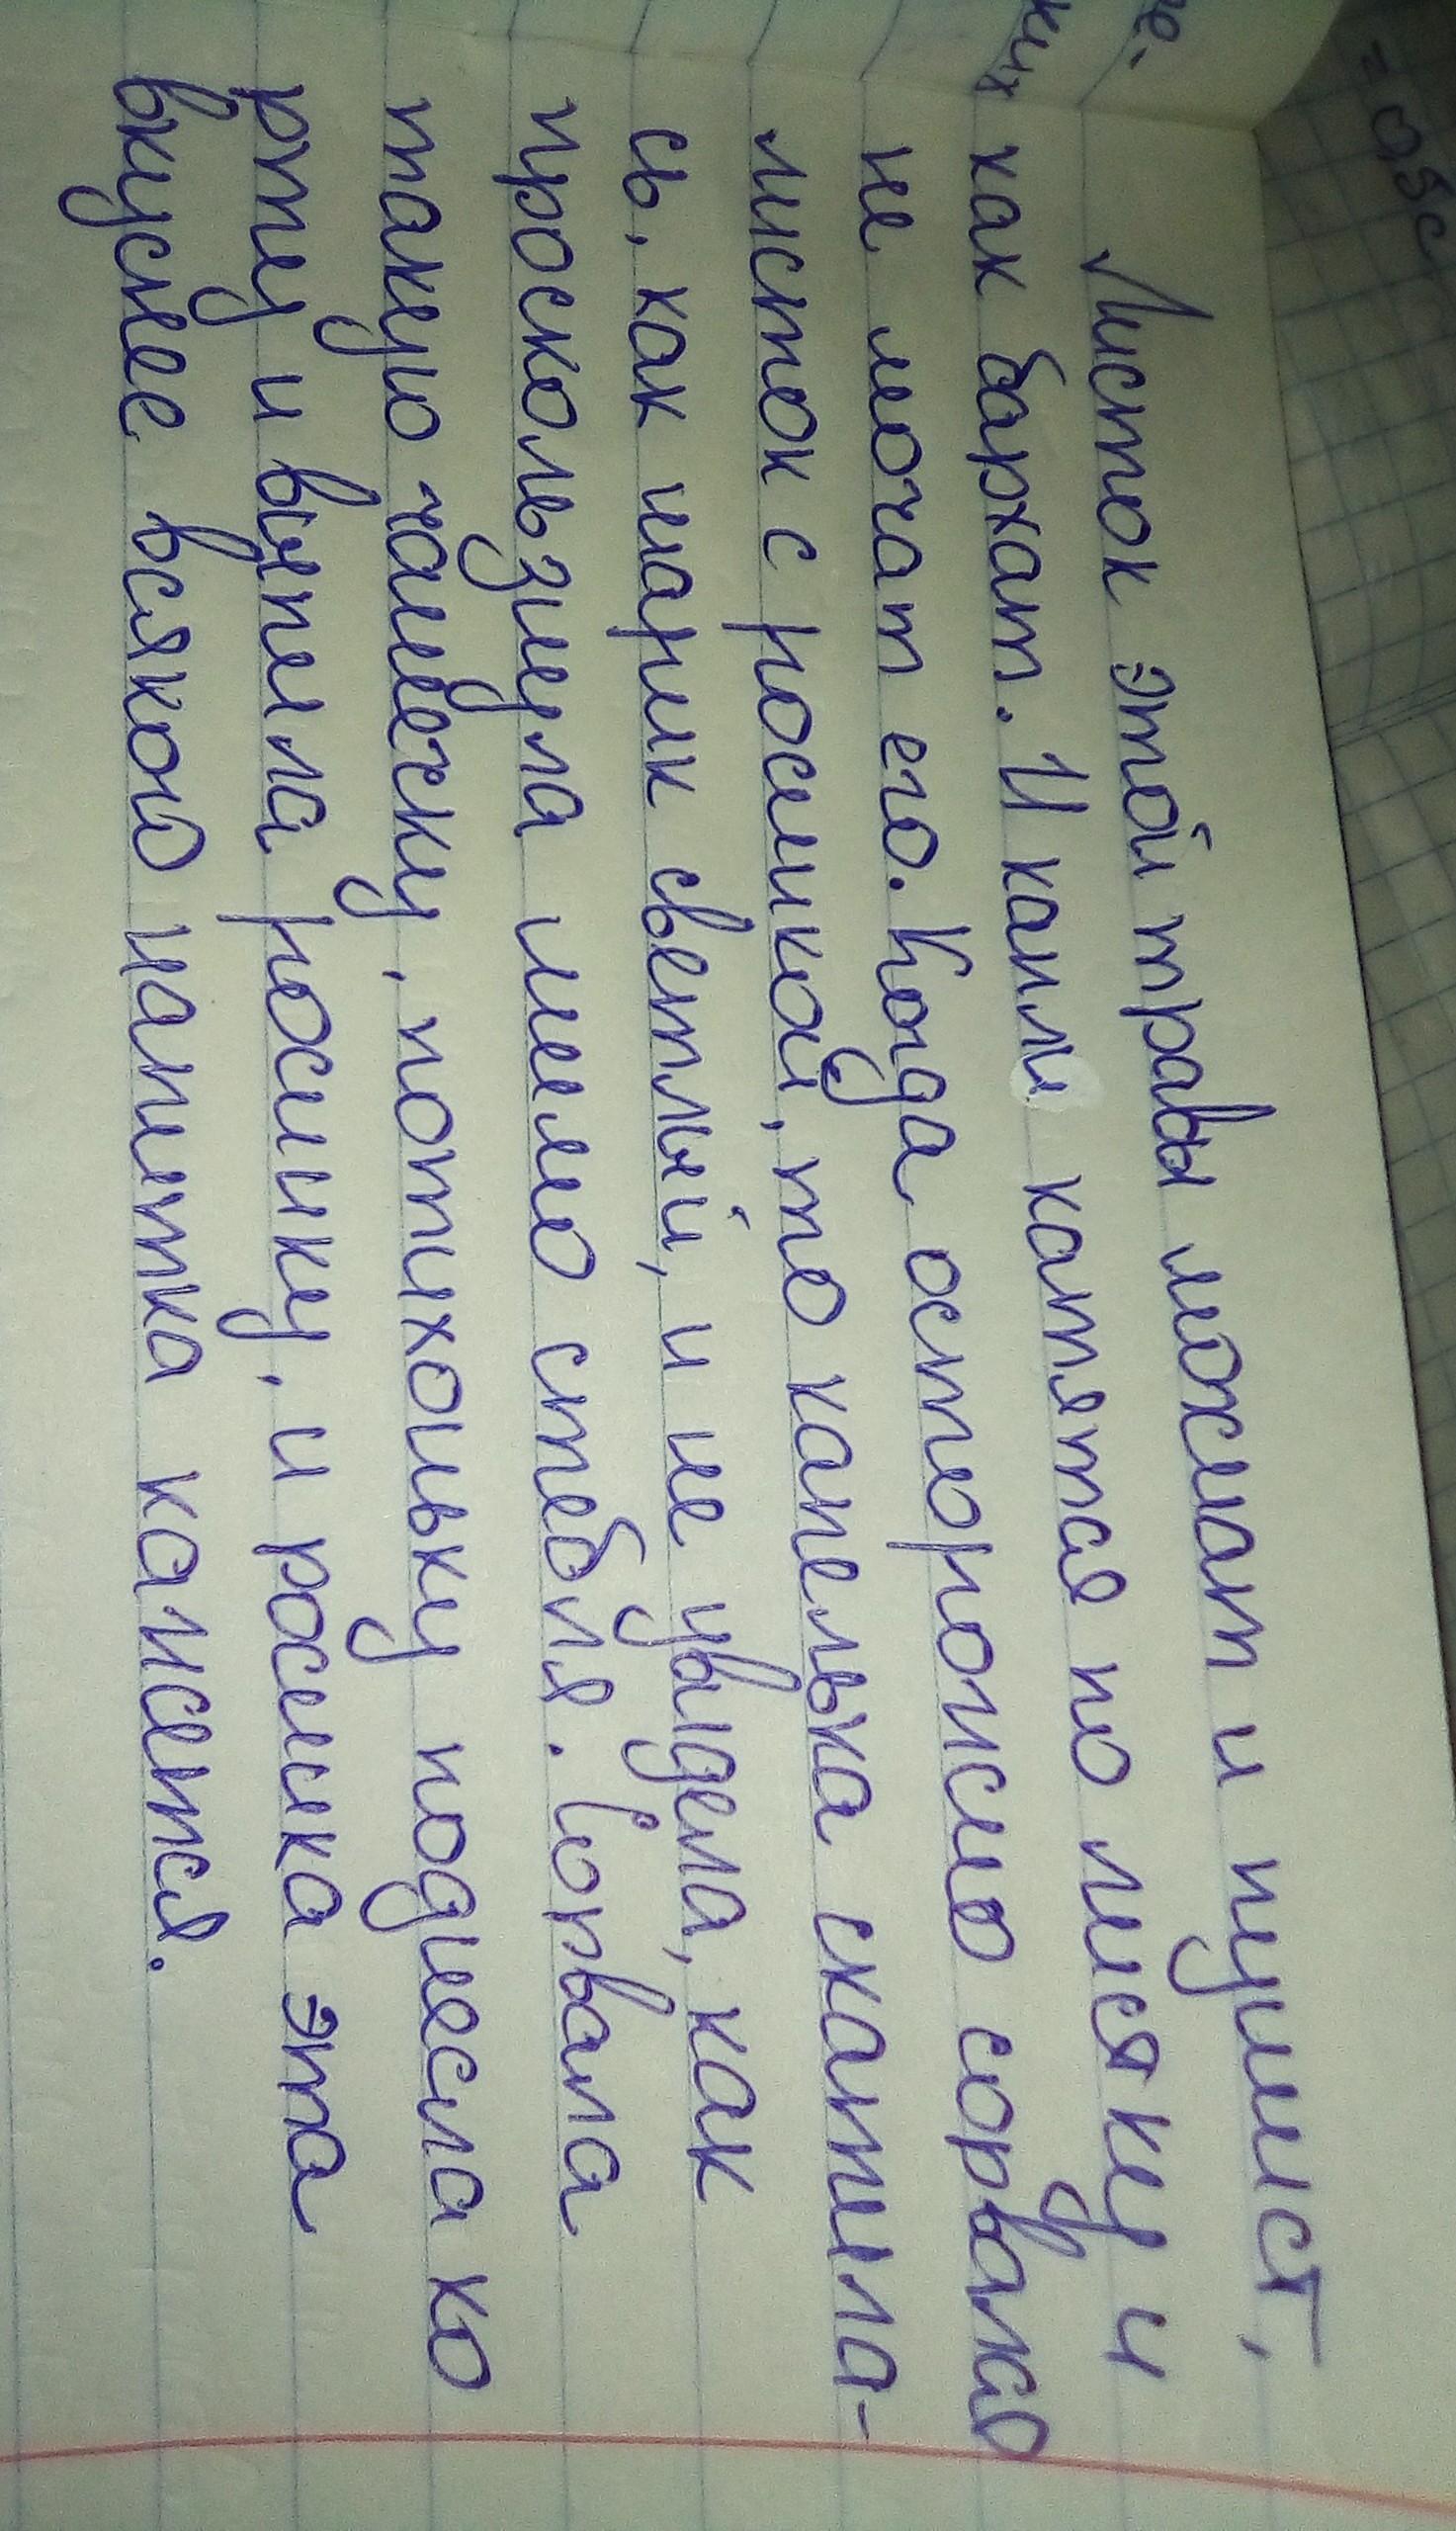 Листок этой травы мохнат и пушист,
как бархат. И капли катятся по листку и
не мочат его. Когда осторожно сорвала
листок с росинкой, то капелька скатила-
сь, как шарик светлый, и не увидела, как
проскользнула мимо стебля. Сорвала
такую чашечку, потихоньку поднесла ко
рту и выпила росинку, и росинка эта
вкуснее всякого напитка кажется.